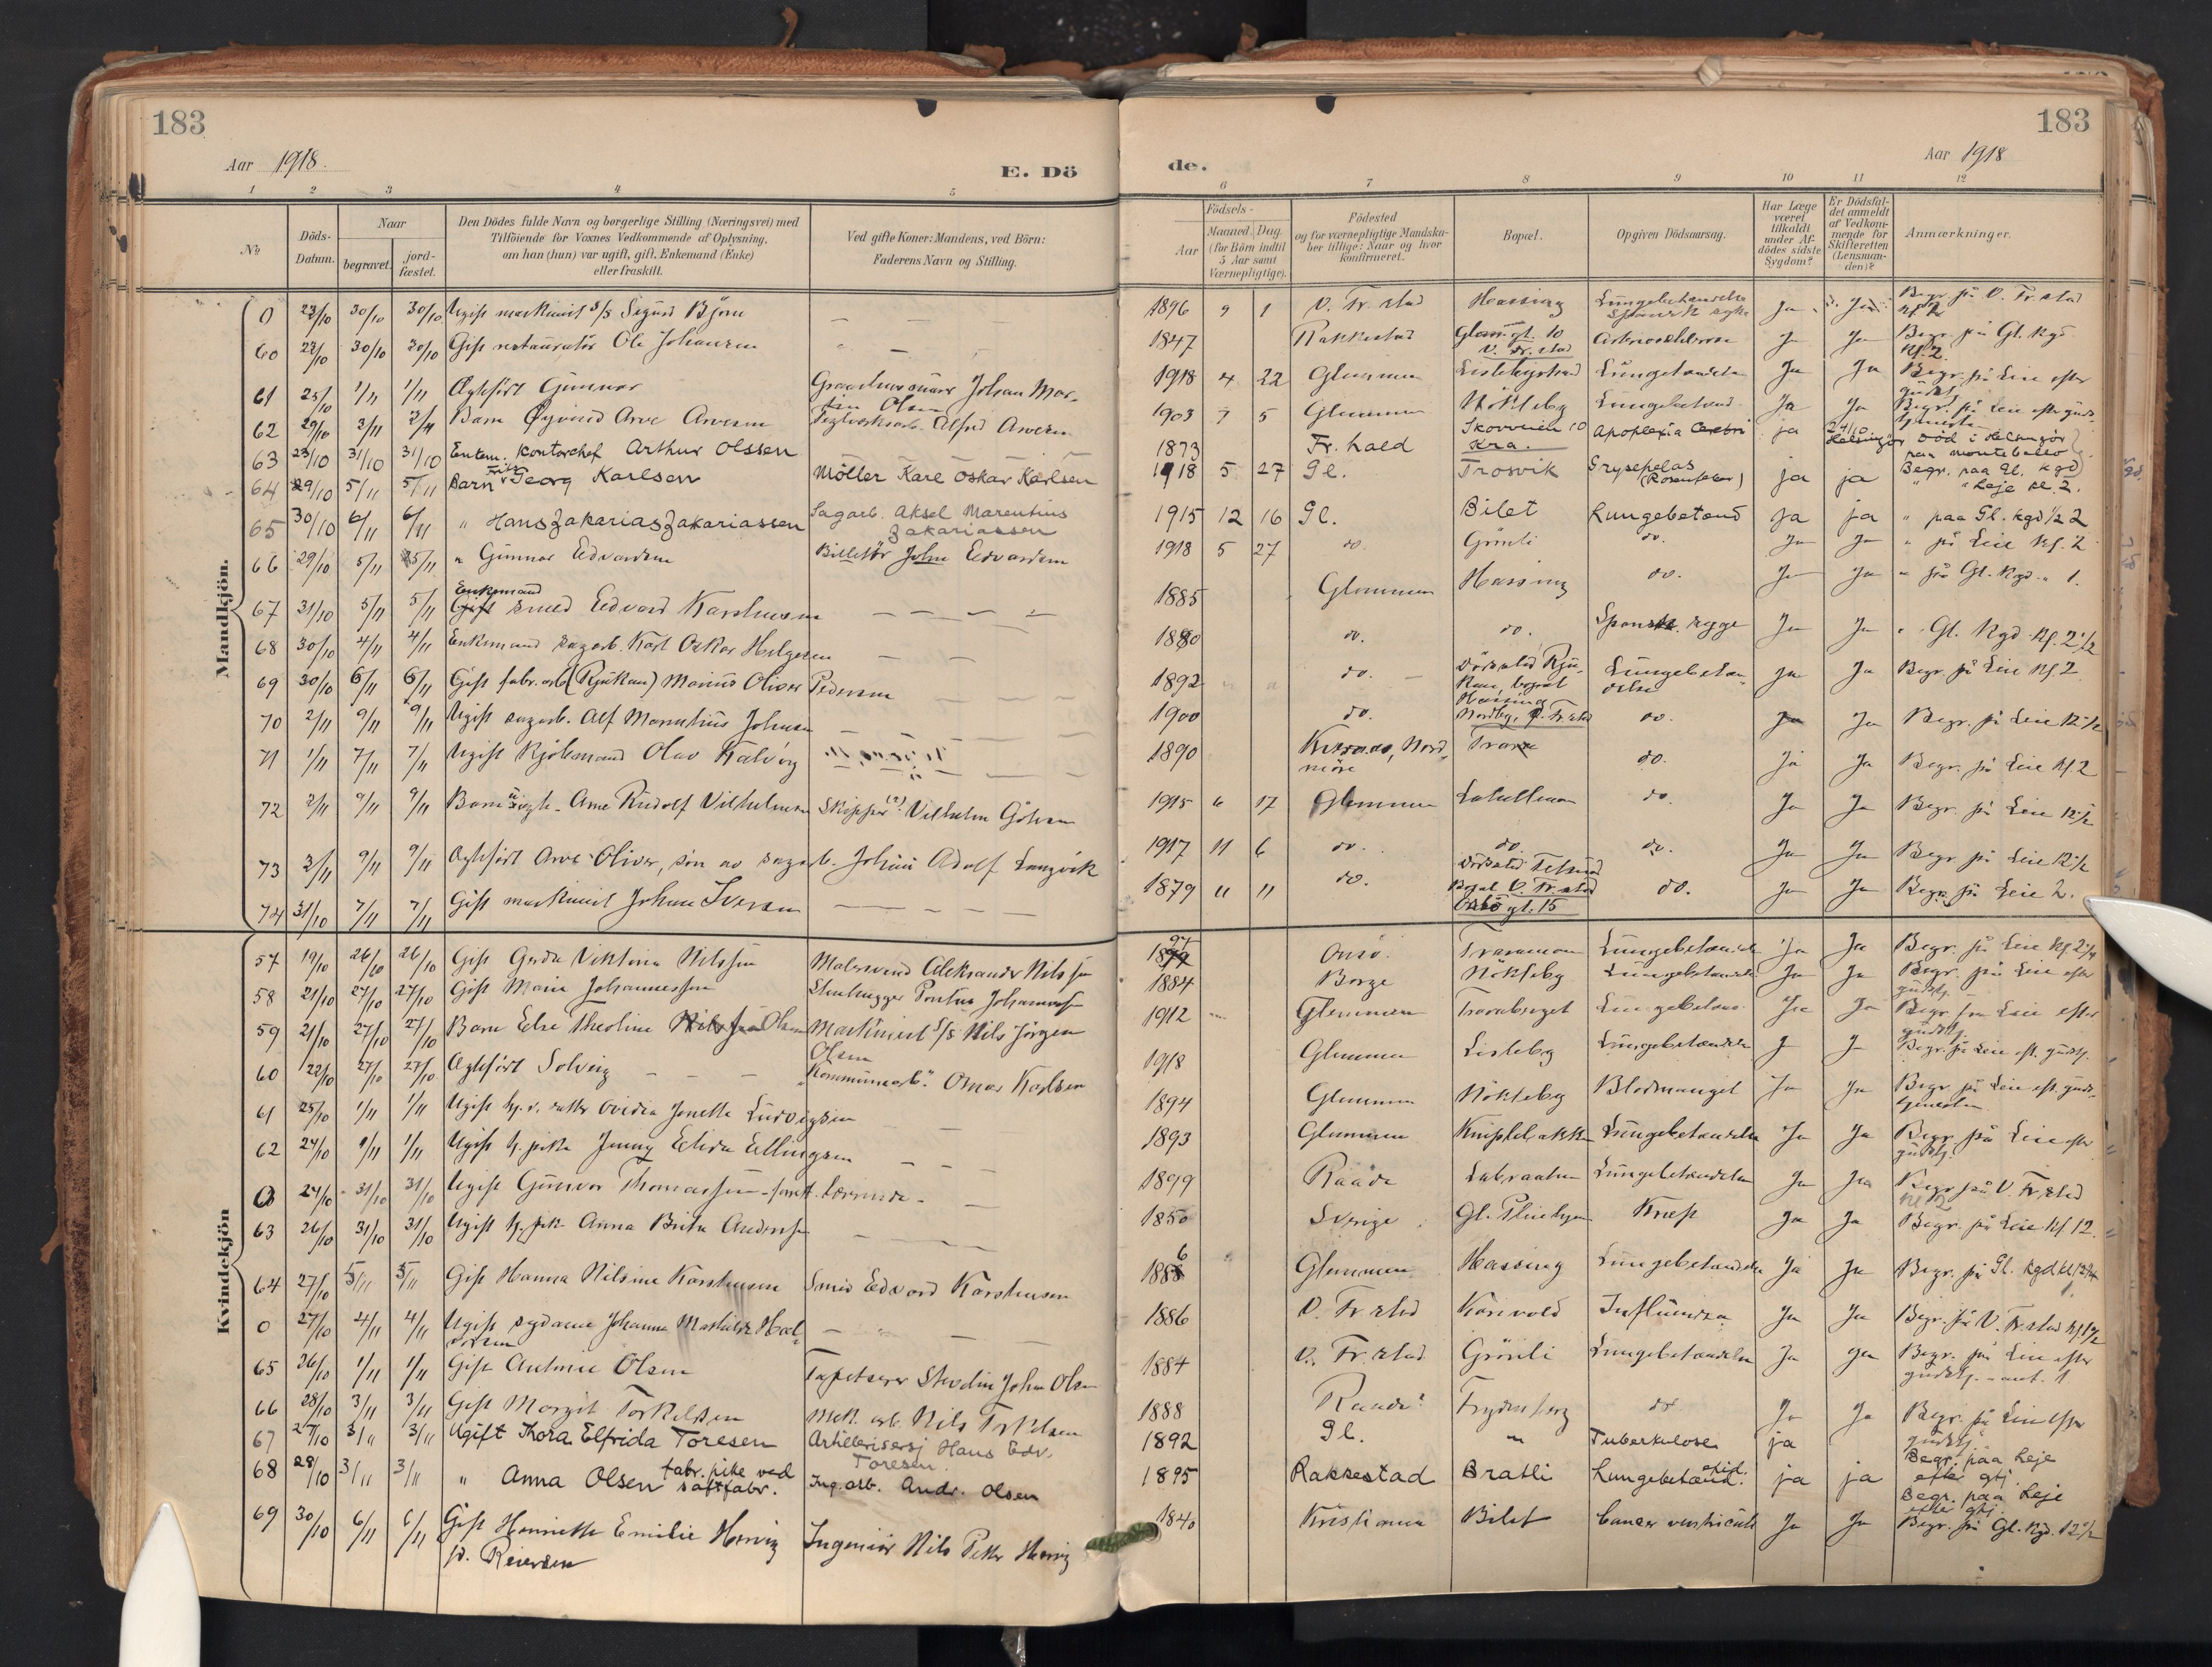 183
Aar 1918.
E. Dö
1 2 3 4 5
No
Döds-
Datum.
Naar
begravet.
jord-
fæstet.
Den Dödes fulde Navn og borgerlige Stilling (Næringsvei) med
Tilföiende for Voxnes Vedkommende af Oplysning,
om han (hun) var ugift, gift, Enkemand (Enke)
eller fraskilt.
Ved gifte Koner: Mandens, ved Börn:
Faderens Navn og Stilling.
Mandkjön.
0 23/10 30/10 30/10 Ugift maskinist s/s Sigurd Björn
60 23/10 30/10 30/10 Gift restauratör Ole Johansen
61 25/10 1/11 1/11 Ægtefört Gunnar Johan Mar-
tin Olsen
62 29/10 2/11 2/11 Barn Øyvind Arve Arvesen Teglverksarb. Alfred Arvesen
63 23/10 31/10 31/10 Enkem. Kontorchef Arthur Olssen
64 29/10 5/11 5/11 Barn Georg Karlsen Möller Karl Oskar Karlsen
65 30/10 6/11 6/11 " Hans Zakarias Zakariassen Sagarb. Aksel Marentius
Zakariassen
66 29/10 5/11 5/11 " Gunnar Edvardsen Billettör John Edvardsen
Enkemand
67 31/10 5/11 5/11 Gift smed Edvard Karstensen
68 30/10 4/11 4/11 Enkemand sagarb. Karl Oskar Helgesen
69 30/10 6/11 6/11 Gift fabr. arb (Rjukan) Marius Oliver Pedersen
70 2/11 9/11 9/11 Ugift sagarb. Alf Marentius Johnsen
71 1/11 7/11 7/11 Ugift Kjöbmand Olav Kalvög
72 2/11 9/11 9/11 Barn uægte Arne Rudolf Vilhelmsen Skipper(?) Vilhelm
73 3/11 9/11 9/11 Ægtefört Arve Oliver, sön av sagarb. Johan Adolf Langvik
74 31/10 7/11 7/11 Gift maskinist Johan Iversen
Kvindekjön
57 19/10 26/10 26/10 Gift Gerda Viktoria Nilssen Malersvend Aleksander Nilssen
58 21/10 27/10 27/10 Gift Marie Johannessen Stenhugger Pontus Johannessen
59 21/10 27/10 27/10 Barn Else Theoline Olsen Maskinist s/s Nils Jörgen
Olsen
60 22/10 27/10 27/10 Ægtefört Solveig "Kommunearb." Omar Karlsen
61 25/10 1/11 1/11 Ugift Ovidia Jonette Ludvigsen
62 24/10 1/11 1/11 Ugift pike Jenny Elida Ellingsen
0 24/10 31/10 31/10 Ugift Gunvor Thomassen
63 26/10 31/10 31/10 Ugift Anna Brita Andersson
64 27/10 5/11 5/11 Gift Hanna Nilsine Karstensen Smed Edvard Karstensen
0 27/10 4/11 4/11 Ugift sydame Johanne Mathilde Hal-
vorsen
65 26/10 1/11 1/11 Gift Antonie Olsen Tapetserer John Olsen
66 28/10 3/11 3/11 Gift Margit Torkildsen Mek. arb. Nils Torkildsen
67 27/10 3/11 3/11 Ugift Thora Elfrida Toresen Artillerisersj Hans Edv.
Toresen
68 28/10 3/11 3/11 " Anna Olsen fabr. pike ved
saftfabr. Ing. arb. Andr. Olsen
69 30/10 6/11 6/11 Gift Henriette Emilie Herwig Ingeniör Nils Peter Herwig
f. Reiersen
183
Aar 1918
de.
6 7 8 9 10 11 12
Födsels-
Aar
Maaned. Dag.
(for Börn indtil
5 Aar samt
Værnepligtige).
Födested
og for værnepligtige Mandska-
ber tillige: Naar og hvor
konfirmeret.
Bopæl.
Opgiven Dödsaarsag.
Har Læge
været
tilkaldt
under Af-
dödes sidste
Sygdom?
Er Dödsfal-
det anmeldt
af Vedkom-
mende for
Skifteretten
(Lensman-
den)?
Anmærkninger.
1896 9 1 V. Fr. stad Hassing Lungebetændelse
Spansk syke Ja Ja Begr. på V. Fr. stad
Kl 2
1847 Rakkestad Glomgt. 10
V. Fr. stad Arteriosklerose J Ja Begr. på Gl. Kgd.
Kl. 2
1918 4 22 Glemmen Lislebystrand Lungebetændelse Ja Ja Begr. på Leie efter
gudstj
1903 7 5 Glemmen Nökleby Lungebetænd. Ja Ja Begr. på Leie eft. guds-
tjeneste
1873 Fr. hald Skovveien 10
Kra. Apoplexia Cerebri ja 24/10
Helsingör Död i Helsingör
paa Montebello
1918 5 27 Gl. Trosvik Erysipelas
(Rosenfeber) ja ja Begr. paa Gl. kgd
" Leje kl. 2.
1915 12 16 Gl. Bilet Lungebetænd ja ja " paa Gl. kgd 1/2 2
1918 5 27 do. Grönli do. Ja Ja " på Leie Kl. 2
1885 Glemmen Hassing do. Ja Ja " på Gl. Kgd. " 1.
1880 do. do. Spanske syge Ja Ja " Gl. Kgd. Kl. 2 1/2
1892 do. Dödssted Rju-
kan, bopæl
Hassing Lungebetæn-
delse Ja Ja Begr. på Leie Kl 2
1900 do. Nordby, Fr. stad do. Ja Ja Begr. på Leie 12 1/2
1890 Nord-
möre Trara do. Ja Ja Begr. på Leie Kl 2
1915 6 17 Glemmen Labellmoen do. Ja Ja Begr. på Leie 12 1/2
1917 11 6 do. do. do. Ja Ja Begr. på Leie 12 1/2
1879 11 11 do. Dödssted
Bopæl V. Fr. stad
gt. 15 do. Ja Ja Begr. på Leie 2.
Onsö Traramoen Lungebetændelse Ja Ja Begr. på Leie Kl. 2 1/4
1884 Borge Nökleby Lungebetændelse Ja Ja Begr. på Leie efter
gudstj.
1912 Glemmen Traraberget Lungebetænd Ja Ja Begr. på Leie efter
gudstj.
1918 Glemmen Lisleby Lungebetændelse J J Begr. på Leie eft. gudstj.
1894 Glemmen Nökleby Blodmangel Ja Ja Begr. på Leie eft. guds-
tjenesten
1893 Glemmen Kniplebakken Lungebetændelse Ja Ja Begr. på Leie efter
gudstj.
1899 Raade Labraaten Lungebetændelse Ja Ja Begr. på V. Fr. stad
Kl 2
1850 Sverige Gl. Pleiehjem Kræft Ja Ja Begr. på Leie Kl 12.
1886 Glemmen Hassing Lungebetændelse Ja Ja Begr. på Gl. Kgd.
1886 V. Fr. stad Kornvold Influenza Ja Ja Begr. på V. Fr. stad
1884 V. Fr. stad Grönli Lungebetændelse Ja Ja Begr. på Leie efter
gudstj.
1888 Raade? Frydenberg do Ja Ja Begr. på Leie efter
gudstj.
1892 Gl. " Tuberkulose ja Begr. paa Leje
efter gtj.
1895 Rakkestad Bratli Lungebetænd. ja ja Begr. paa Leje
efter gtj
1840 Kristiania Bilet Cancer ventriculi Ja Ja Begr. på Gl. Kgd. 12 1/2